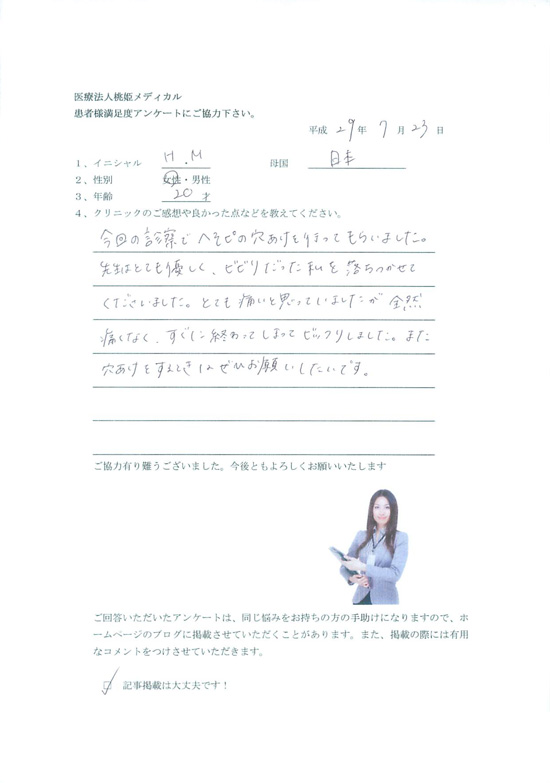 医療法人桃姫メディカル
患者様満足度アンケートにご協力下さい。
平成 29年 7月 23日
1、イニシャル H.M 母国 日本
2、性別 女性・男性
3、年齢 20才
4、クリニックのご感想や良かった点などを教えてください。
今回の診察でへそピの穴あけを行ってもらいました。
先生はとても優しく、ビビリだった私を落ちつかせて
くださいました。とても痛いと思っていましたが全然
痛くなく、すぐに終わってしまってビックリしました。また
穴あけをするときはぜひお願いしたいです。
ご協力有り難うございました。今後ともよろしくお願いいたします
ご回答いただいたアンケートは、同じ悩みをお持ちの方の手助けになりますので、ホ
ームページのブログに掲載させていただくことがあります。また、掲載の際には有用
なコメントをつけさせていただきます。
☑ 記事掲載は大丈夫です！